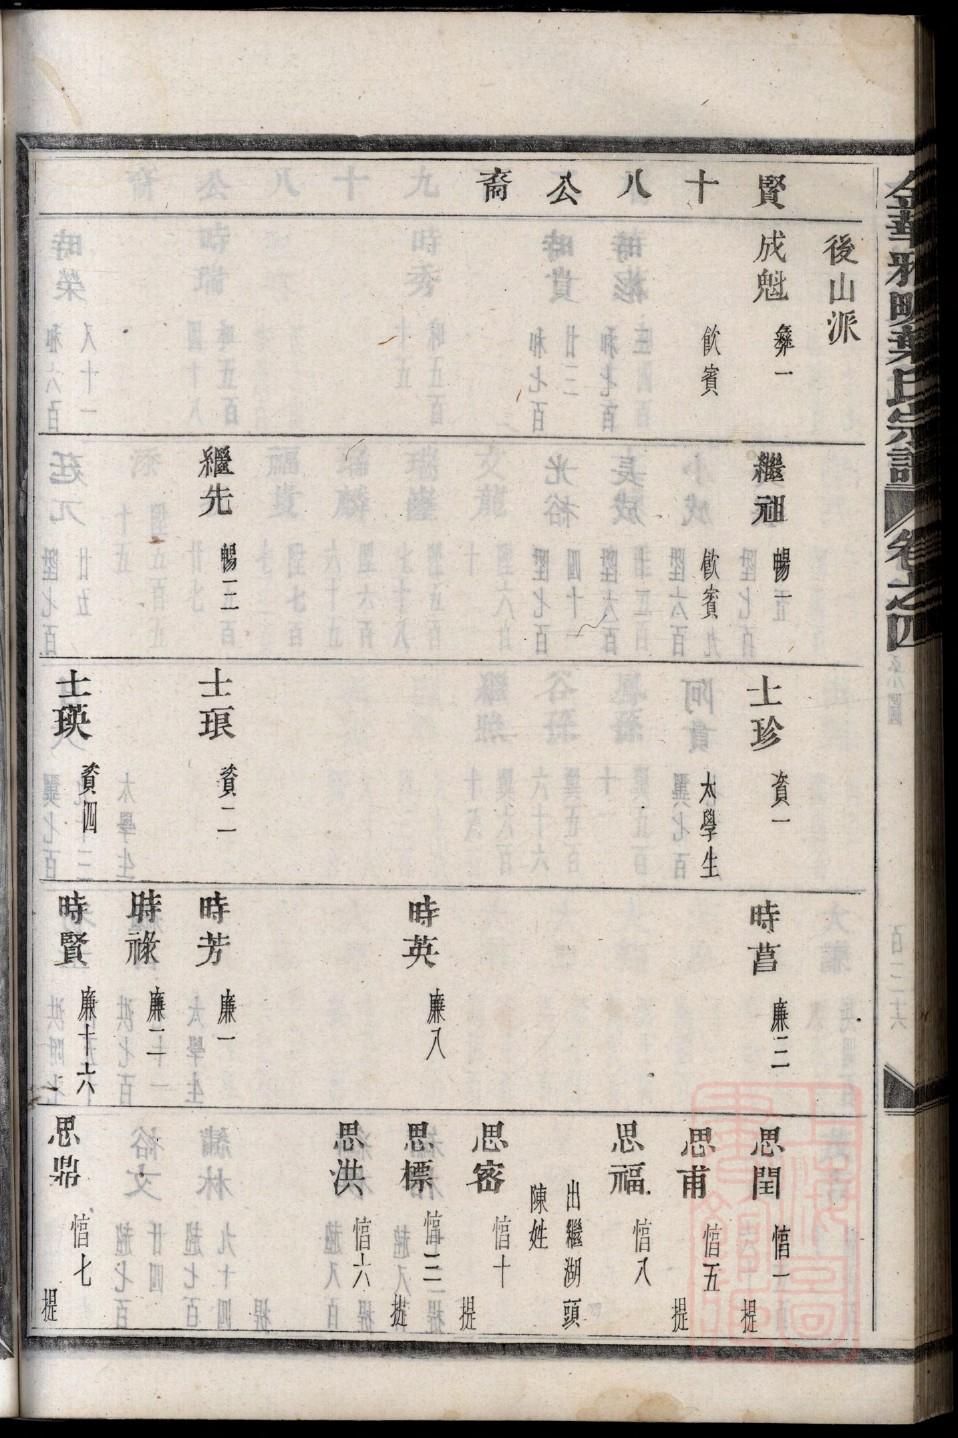 賢十八公裔
後山派
成魁 彝一
飲賓
繼祖 暢一
飲賓
繼先 暢二
士珍 資一
太學生
士琅 資二
士瑛 資四
時菖 廉三
時英 廉八
時芳 廉一
時祿 廉二
時賢 廉十六
思閏 愭一 提
思甫 愭五 提
思福 愭八
出繼湖頭
陳姓
思密 愭十 提
思標 愭三 提
思洪 愭六
思鼎 愭七 提
金華 葉氏宗譜 卷之四